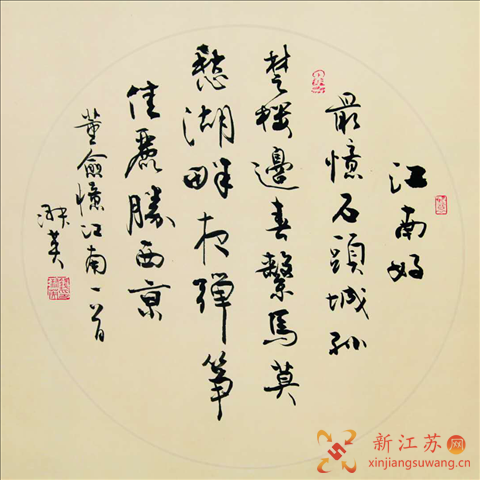 江南好
最憶石頭城孙
楚樓邊春繫馬莫
愁湖畔夜彈筝
佳麗勝西京
董俞憶江南一首
淑英
新江苏网
xinjiangsuwang.cn